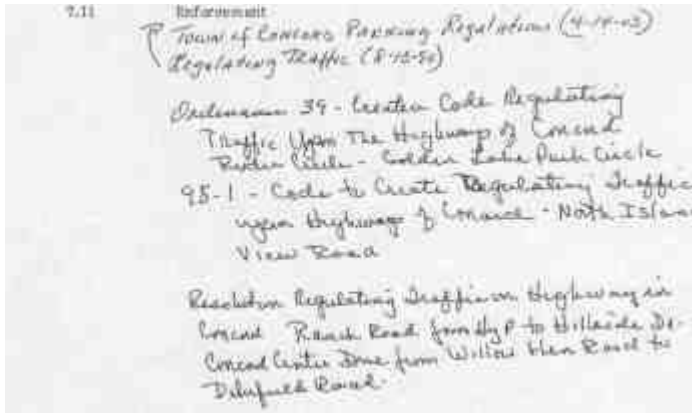 7.11 Enforcement
Town of Concord Parking Regulations (4-14-03)
Regulating Traffic (8-15-56)
Ordinance 39 - Creates Code Regulating
Traffic Upon The Highways of Concord
Circle - Golden Lake Park Circle
95-1 - Code to Create Regulating Traffic
upon Highways of Concord - North Islan
View Road
Resolution Regulating Traffic on Highway in
Concord Ranch Road from Hy P to Hillside Dr -
Concord Center Drive from Willow Glen Road to
Road.